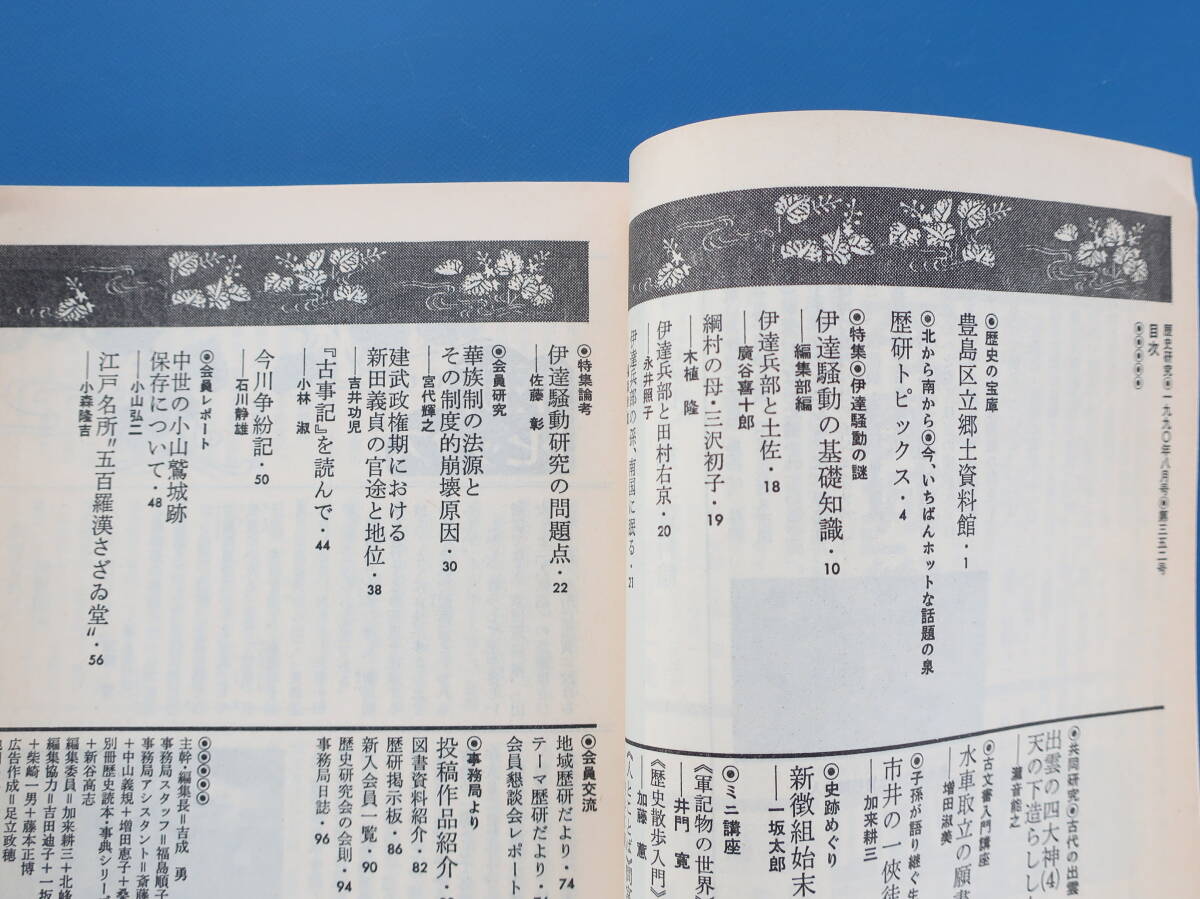 歴史研究●一九九〇年八月号●第三五二号
目次
◉歴史の宝庫
豊島区立郷土資料館・1
◉北から南から◉今、いちばんホットな話題の泉
歴研トピックス・4
◉特集◉伊達騒動の謎
伊達騒動の基礎知識・10
――編集部編
伊達兵部と土佐・18
――廣谷喜十郎
綱村の母・三沢初子・19
――木植 隆
伊達兵部と田村右京・20
――永井照子
伊達兵部の孫、南国に眠る・21
◉共同研究◉古代の出雲
出雲の四大神(4)
天の下造らしし
――瀧音能之
◉古文書入門講座
水車取立の願書
――増田淑美
◉子孫が語り継ぐ
市井の一侠徒
――加来耕三
◉史跡めぐり
新徴組始末
――一坂太郎
◉ミニ講座
《軍記物の世界》
――井門 寛
《歴史散歩入門》
――加藤 蕙
◉特集論考
伊達騒動研究の問題点・22
――佐藤 彰
◉会員研究
華族制の法源と
その制度的崩壊原因・30
――宮代輝之
建武政権期における
新田義貞の官途と地位・38
――吉井功児
『古事記』を読んで・44
――小林 淑
今川争紛記・50
――石川静雄
◉会員レポート
中世の小山鷲城跡
保存について・48
――小山弘二
江戸名所〝五百羅漢さざゐ堂〟・56
――小森隆吉
◉会員交流
地域歴研だより・74
テーマ歴研だより・
会員懇談会レポート
◉事務局より
投稿作品紹介・
図書資料紹介・82
歴研掲示板・86
新入会員一覧・90
歴史研究会の会則・94
事務局日誌・96
◉◉◉◉◉
主幹・編集長＝吉成 勇
事務局スタッフ＝福島順子
事務局アシスタント＝斎藤
＋中山義規＋増田恵子＋桑
別冊歴史読本・事典シリーズ
＋新谷高志
編集委員＝加来耕三＋北峰
編集協力＝吉田迪子＋一坂
＋柴崎一男＋藤本正博
広告作成＝足立政穂